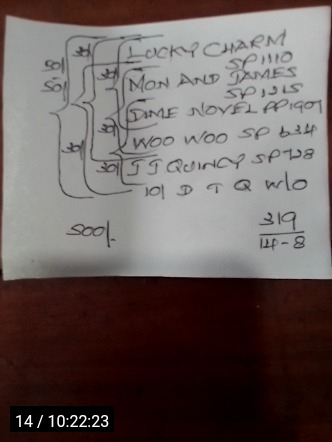 LUCKY CHARM
SP 1110
MON AND JAMES
SP 1215
DIME NOVEL PP 1901
WOO WOO SP 634
JJ QUINCY SP 728
10/ D T Q W/O
50/
50/
30/
30/
30/
30/
500/-
319
14-8
14 / 10:22:23